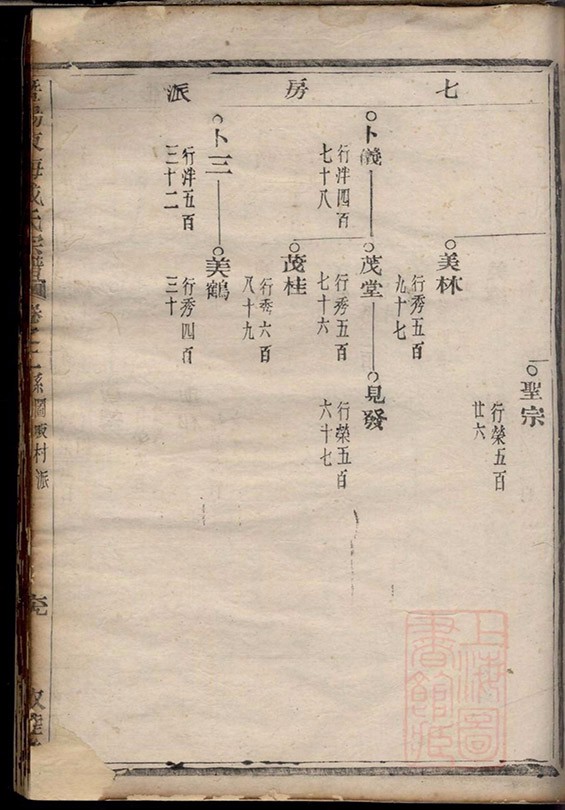 七房派
聖宗
行榮五百
廿六
美林
行秀五百
九十七
卜義
行泮四百
七十八
茂堂
行秀五百
七十六
見發
行榮五百
六十七
茂桂
行秀六百
八十九
卜三
行泮五百
三十二
美鶴
行秀四百
三十
上海圖
書館藏